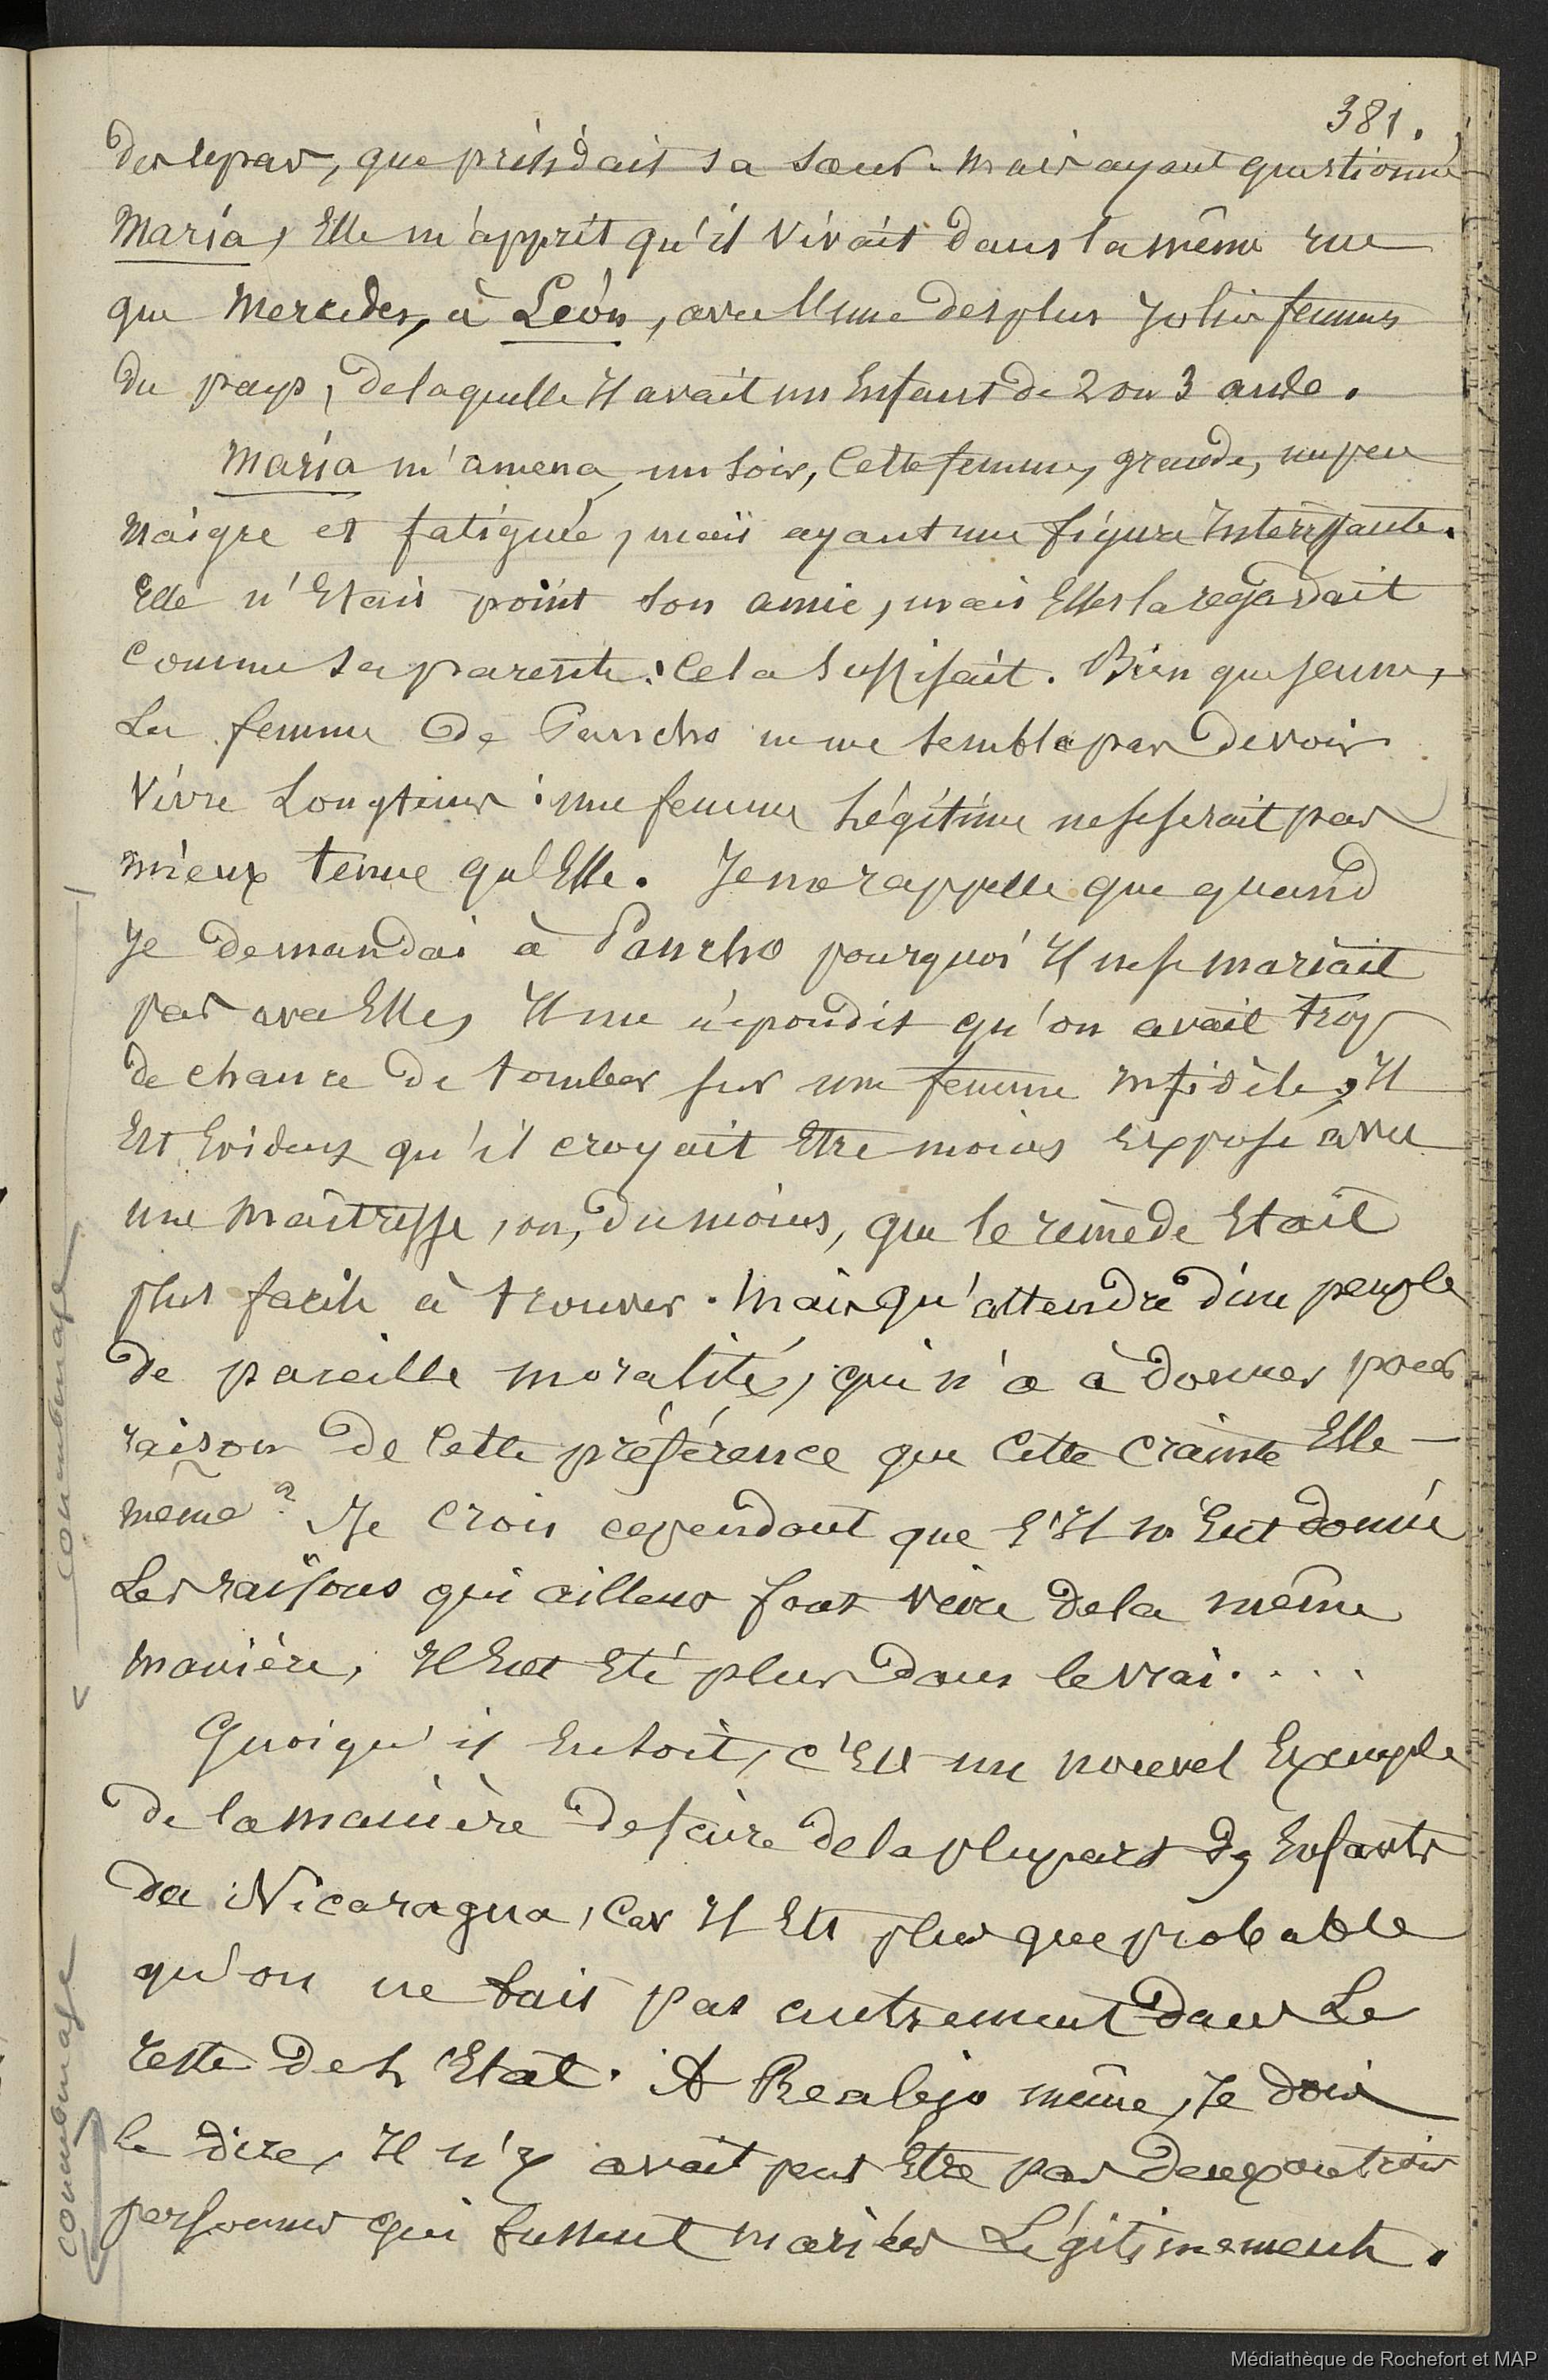 381.
des repas, que présidait sa soeur. Mais ayant questionné
Maria, Elle m'apprit qu'il vivait dans la même rue
que Mercedes, à Léon, avec l'une des plus Jolies femmes
du pays, de laquelle Il avait un Enfant de 2 ou 3 ans.
Maria m'amena, un soir, Cette femme, grande, un peu
Maigre et fatiguée, mais ayant une figure Intéressante.
Elle n'Etait point son amie, mais Elle la regardait
Comme sa parente : Cela suffisait. Bien que jeune,
La femme de Pancho ne me sembla pas devoir
Vivre Longtems : une femme Légitime ne serait pas
mieux tenue qu'Elle. Je me rappelle que quand
Je demandai à Pancho pourquoi Il ne se mariait
pas avec Elle, Il me répondit qu'on avait trop
de chance de tomber sur une femme infidèle, Il
Est Evident qu'il croyait Etre moins Exposé avec
une Maîtresse, ou, du moins, que le remède Etait
plus facile à trouver. Mais qu'attendre d'un peuple
de pareille moralité, qui n'a à donner pour
raison de Cette préférence que Cette Crainte Elle-
même ? Je Crois cependant que s'Il m'Eut donné
Les raisons qui ailleurs font vivre de la même
manière, Il Eut Eté plus dans le vrai. . . .
Quoiqu'il En soit, c'Est un nouvel Exemple
de la manière de faire de la plupart des Enfants
du Nicaragua, Car Il Est plus que probable
qu'on ne fait pas autrement dans Le
reste de l'Etat. A Realejo même, Je dois
le dire, Il n'y avait peut Etre pas deux ou trois
personnes qui fussent mariées Légitimement.
concubinage
concubinage
Médiathèque de Rochefort et MAP